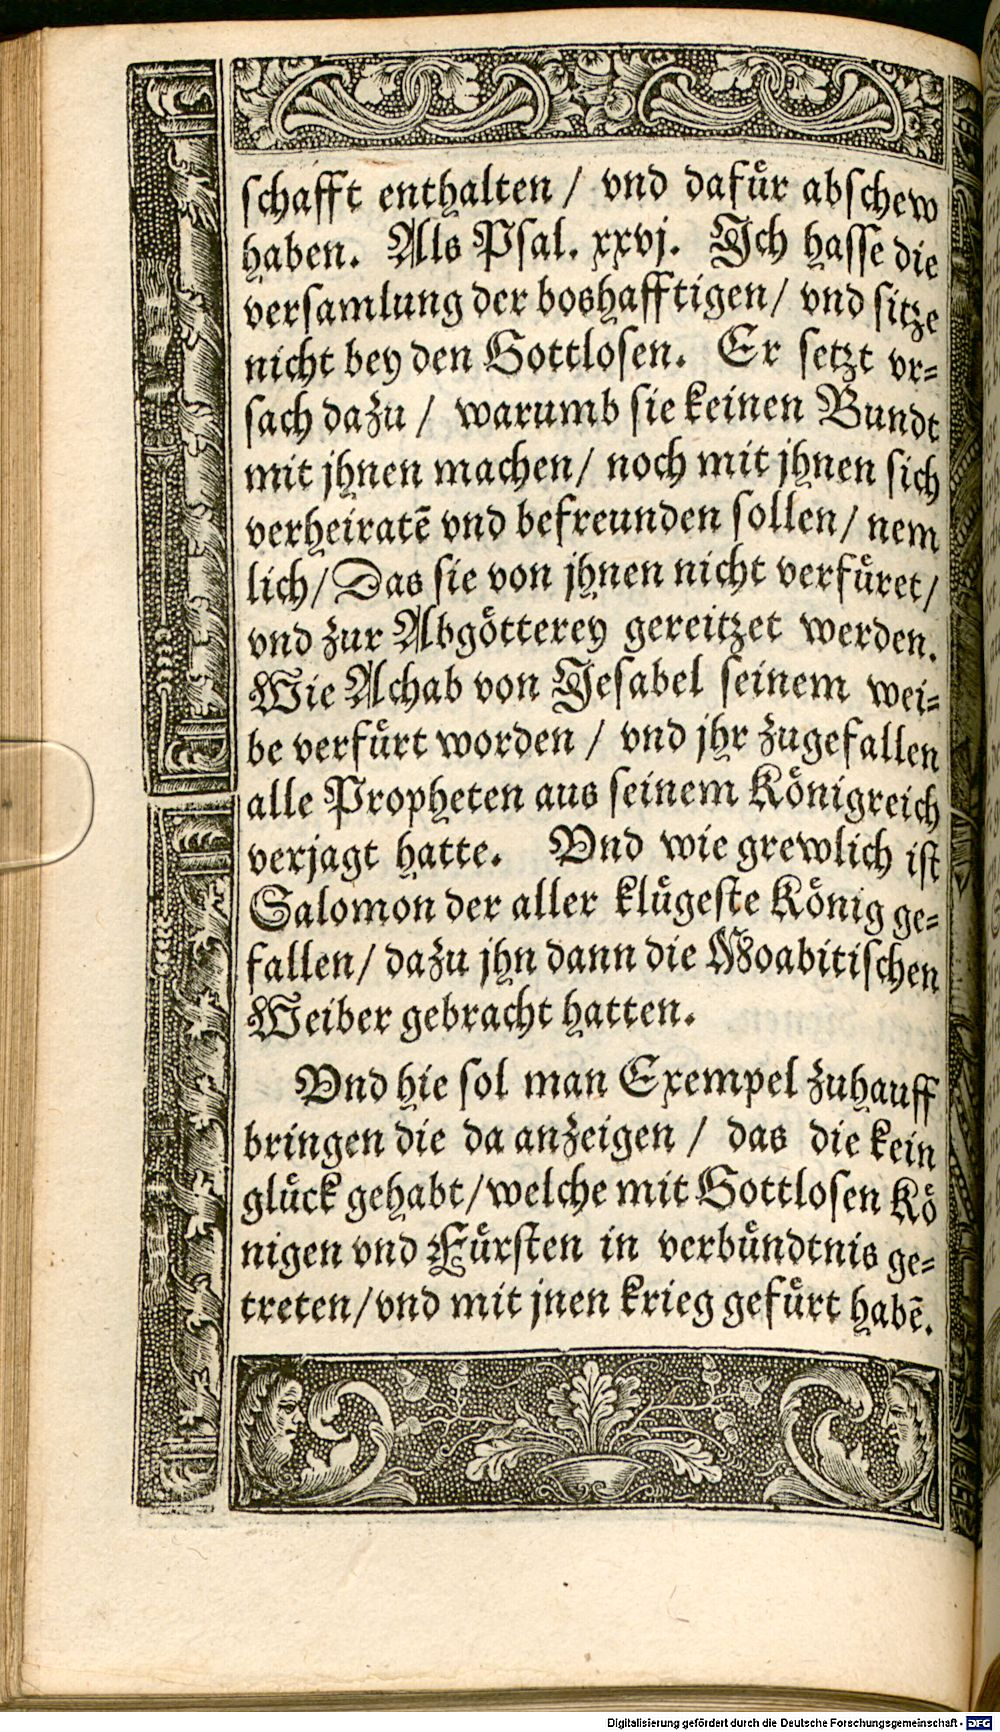 schafft enthalten / vnd dafür abschew
haben. Als Psal. xxvj. Ich hasse die
versamlung der boshafftigen / vnd sitze
nicht bey den Gottlosen. Er setzt vr=
sach dazu / warumb sie keinen Bundt
mit jhnen machen / noch mit jhnen sich
verheiratē vnd befreunden sollen / nem
lich / Das sie von jhnen nicht verfüret /
vnd zur Abgötterey gereitzet werden.
Wie Achab von Jesabel seinem wei=
be verfürt worden / vnd jhr zugefallen
alle Propheten aus seinem Königreich
verjagt hatte. Vnd wie grewlich ist
Salomon der aller klügeste König ge=
fallen / dazu jhn dann die Moabitischen
Weiber gebracht hatten.
Vnd hie sol man Exempel zuhauff
bringen die da anzeigen / das die kein
glück gehabt / welche mit Gottlosen Kö
nigen vnd Fürsten in verbündtnis ge=
treten / vnd mit jnen krieg gefürt habē.
Digitalisierung gefördert durch die Deutsche Forschungsgemeinschaft - DFG